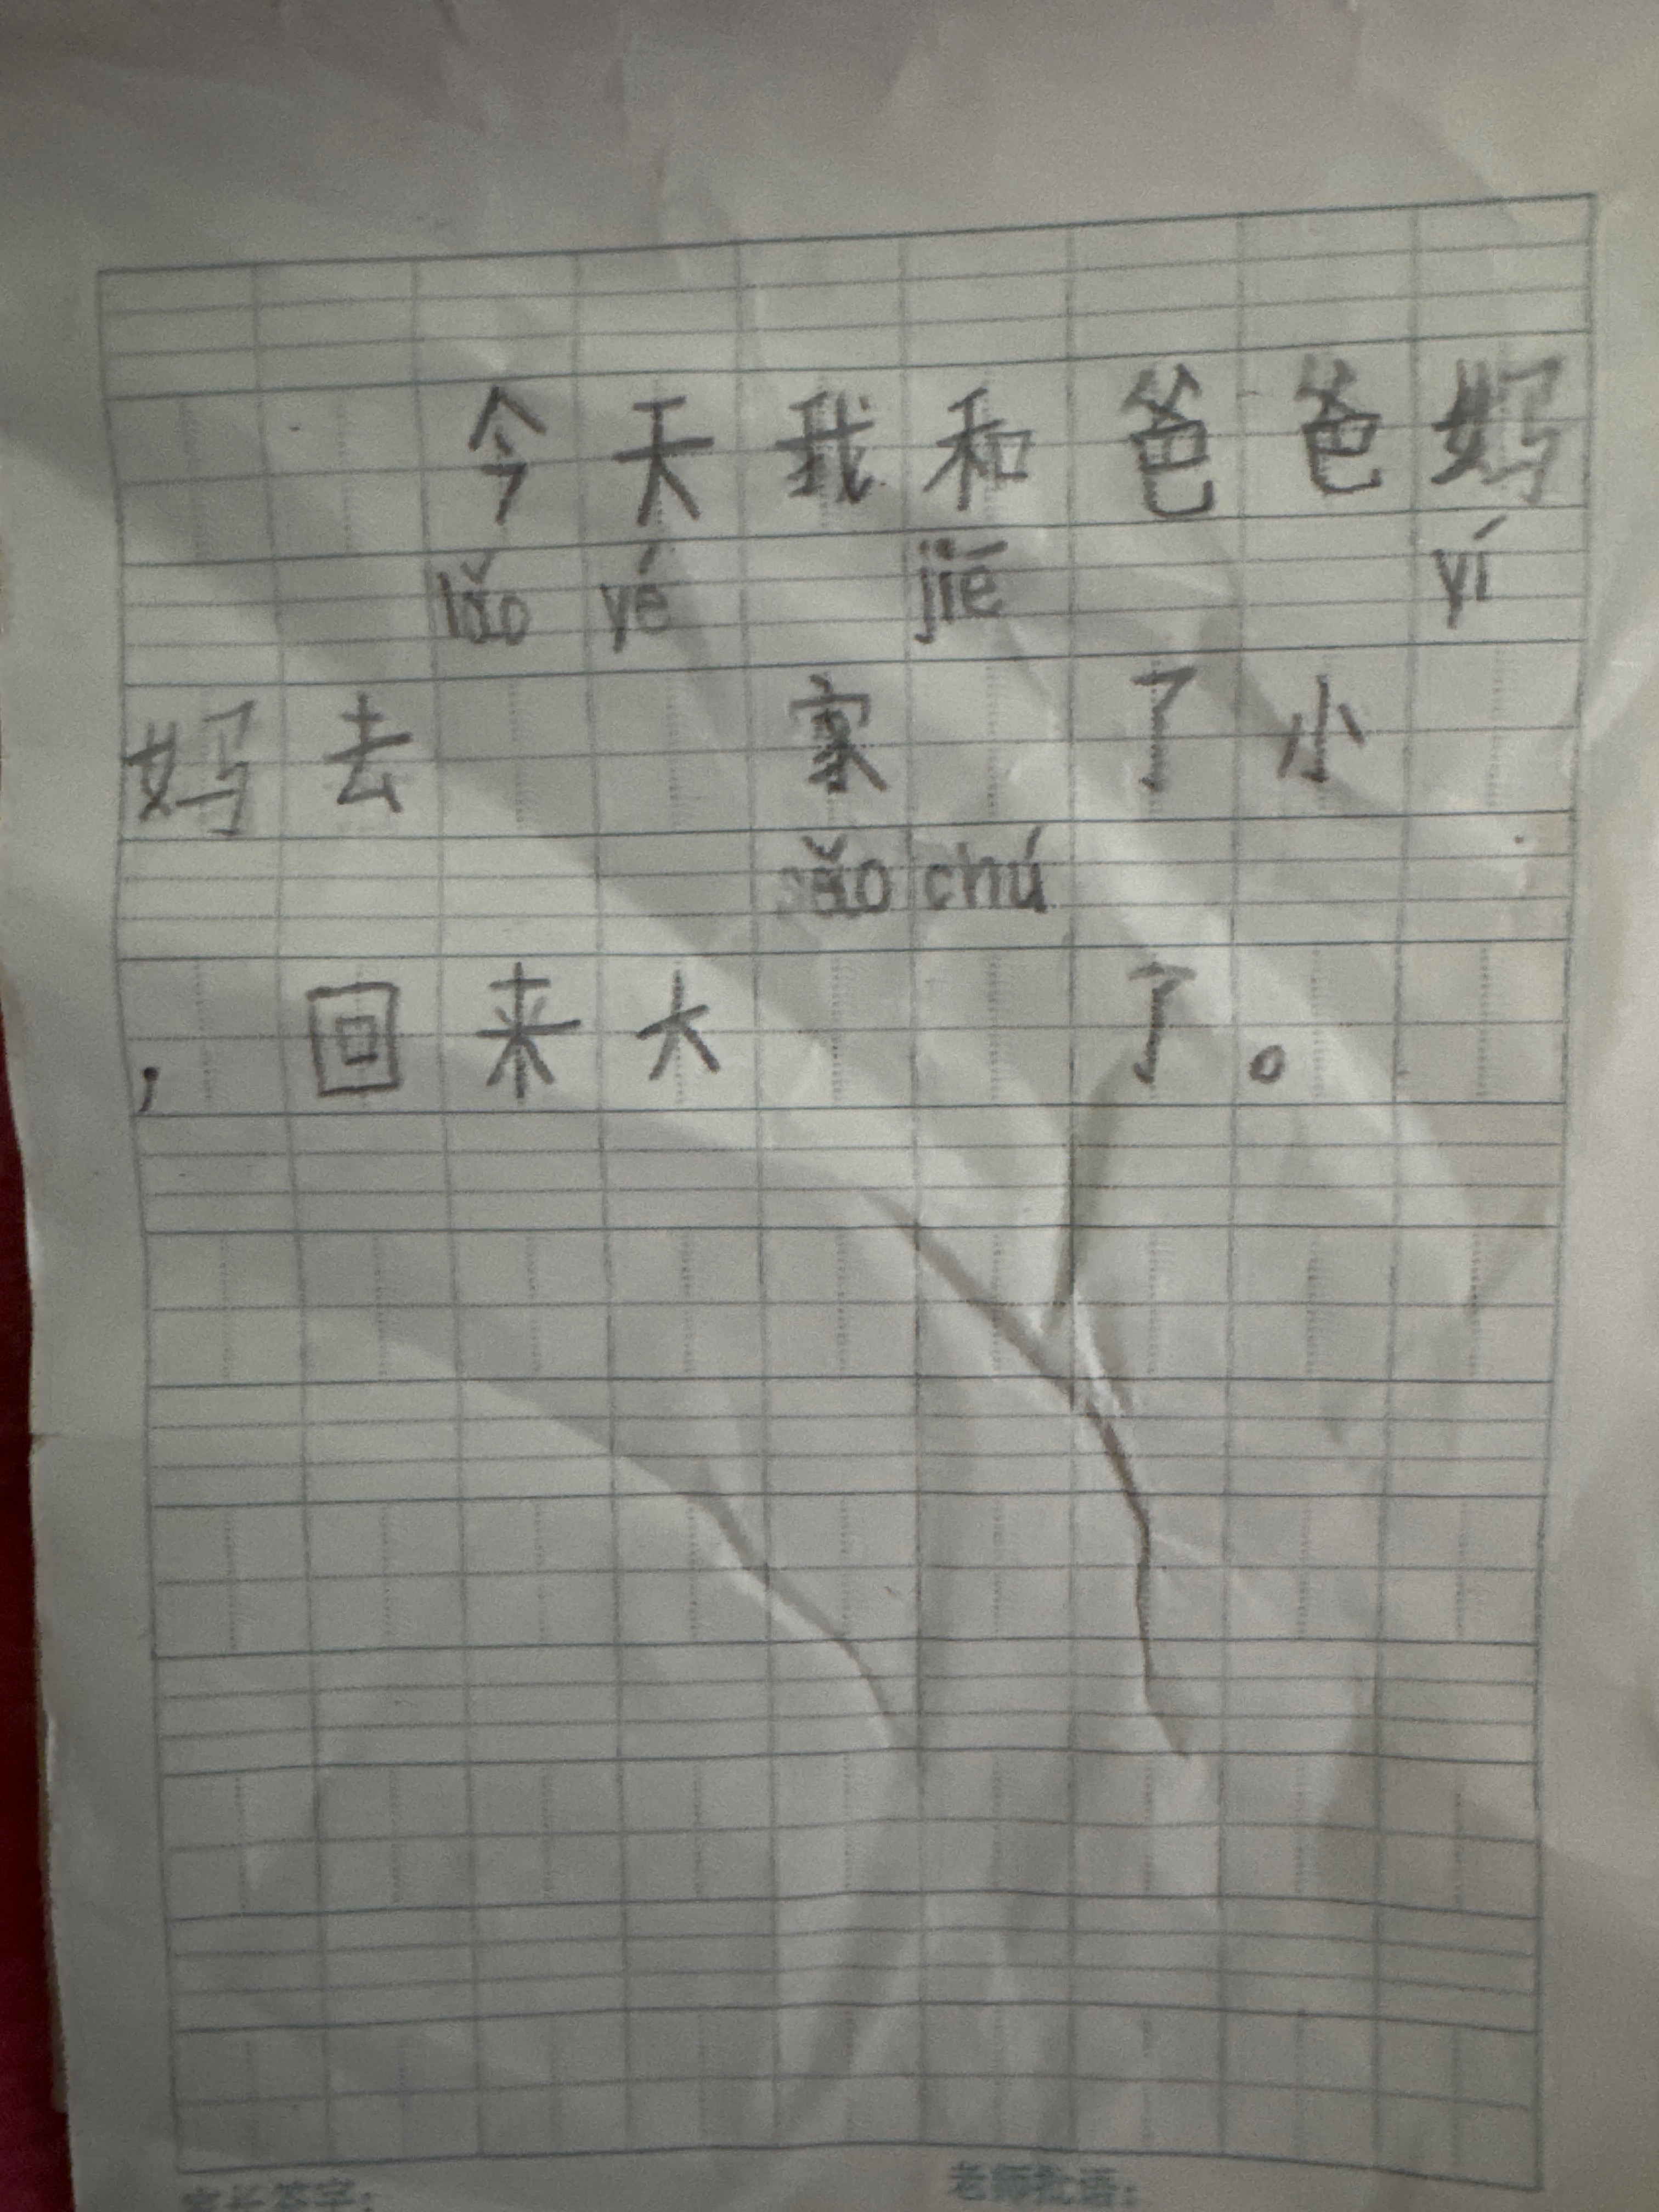 今天我和爸爸妈
lǎo yé jiē yí
妈去 家 了小
sǎo chú
， 回来大 了。
家长签字： 老师批语：